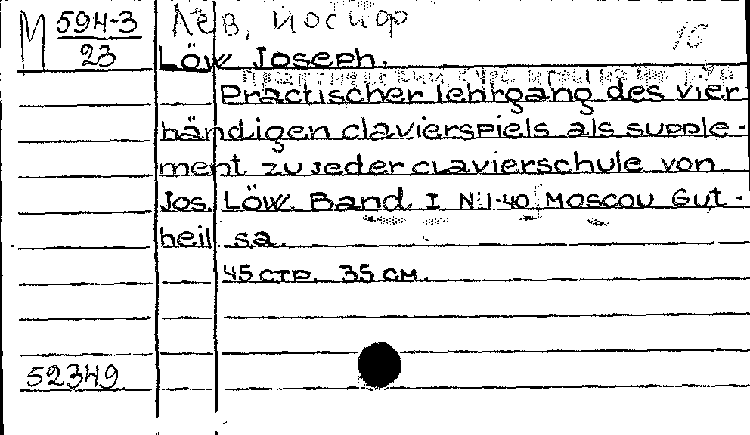 М 594-3
23
Лёв, Йосиф
16
Löw Joseph.
Practischer lehrgang des vier
händigen clavierspiels als supple-
ment zu jeder clavierschule von
Jos. Löw. Band I N:1-40 Moscou Gut-
heil s.a.
45 стр. 35 см.
52349